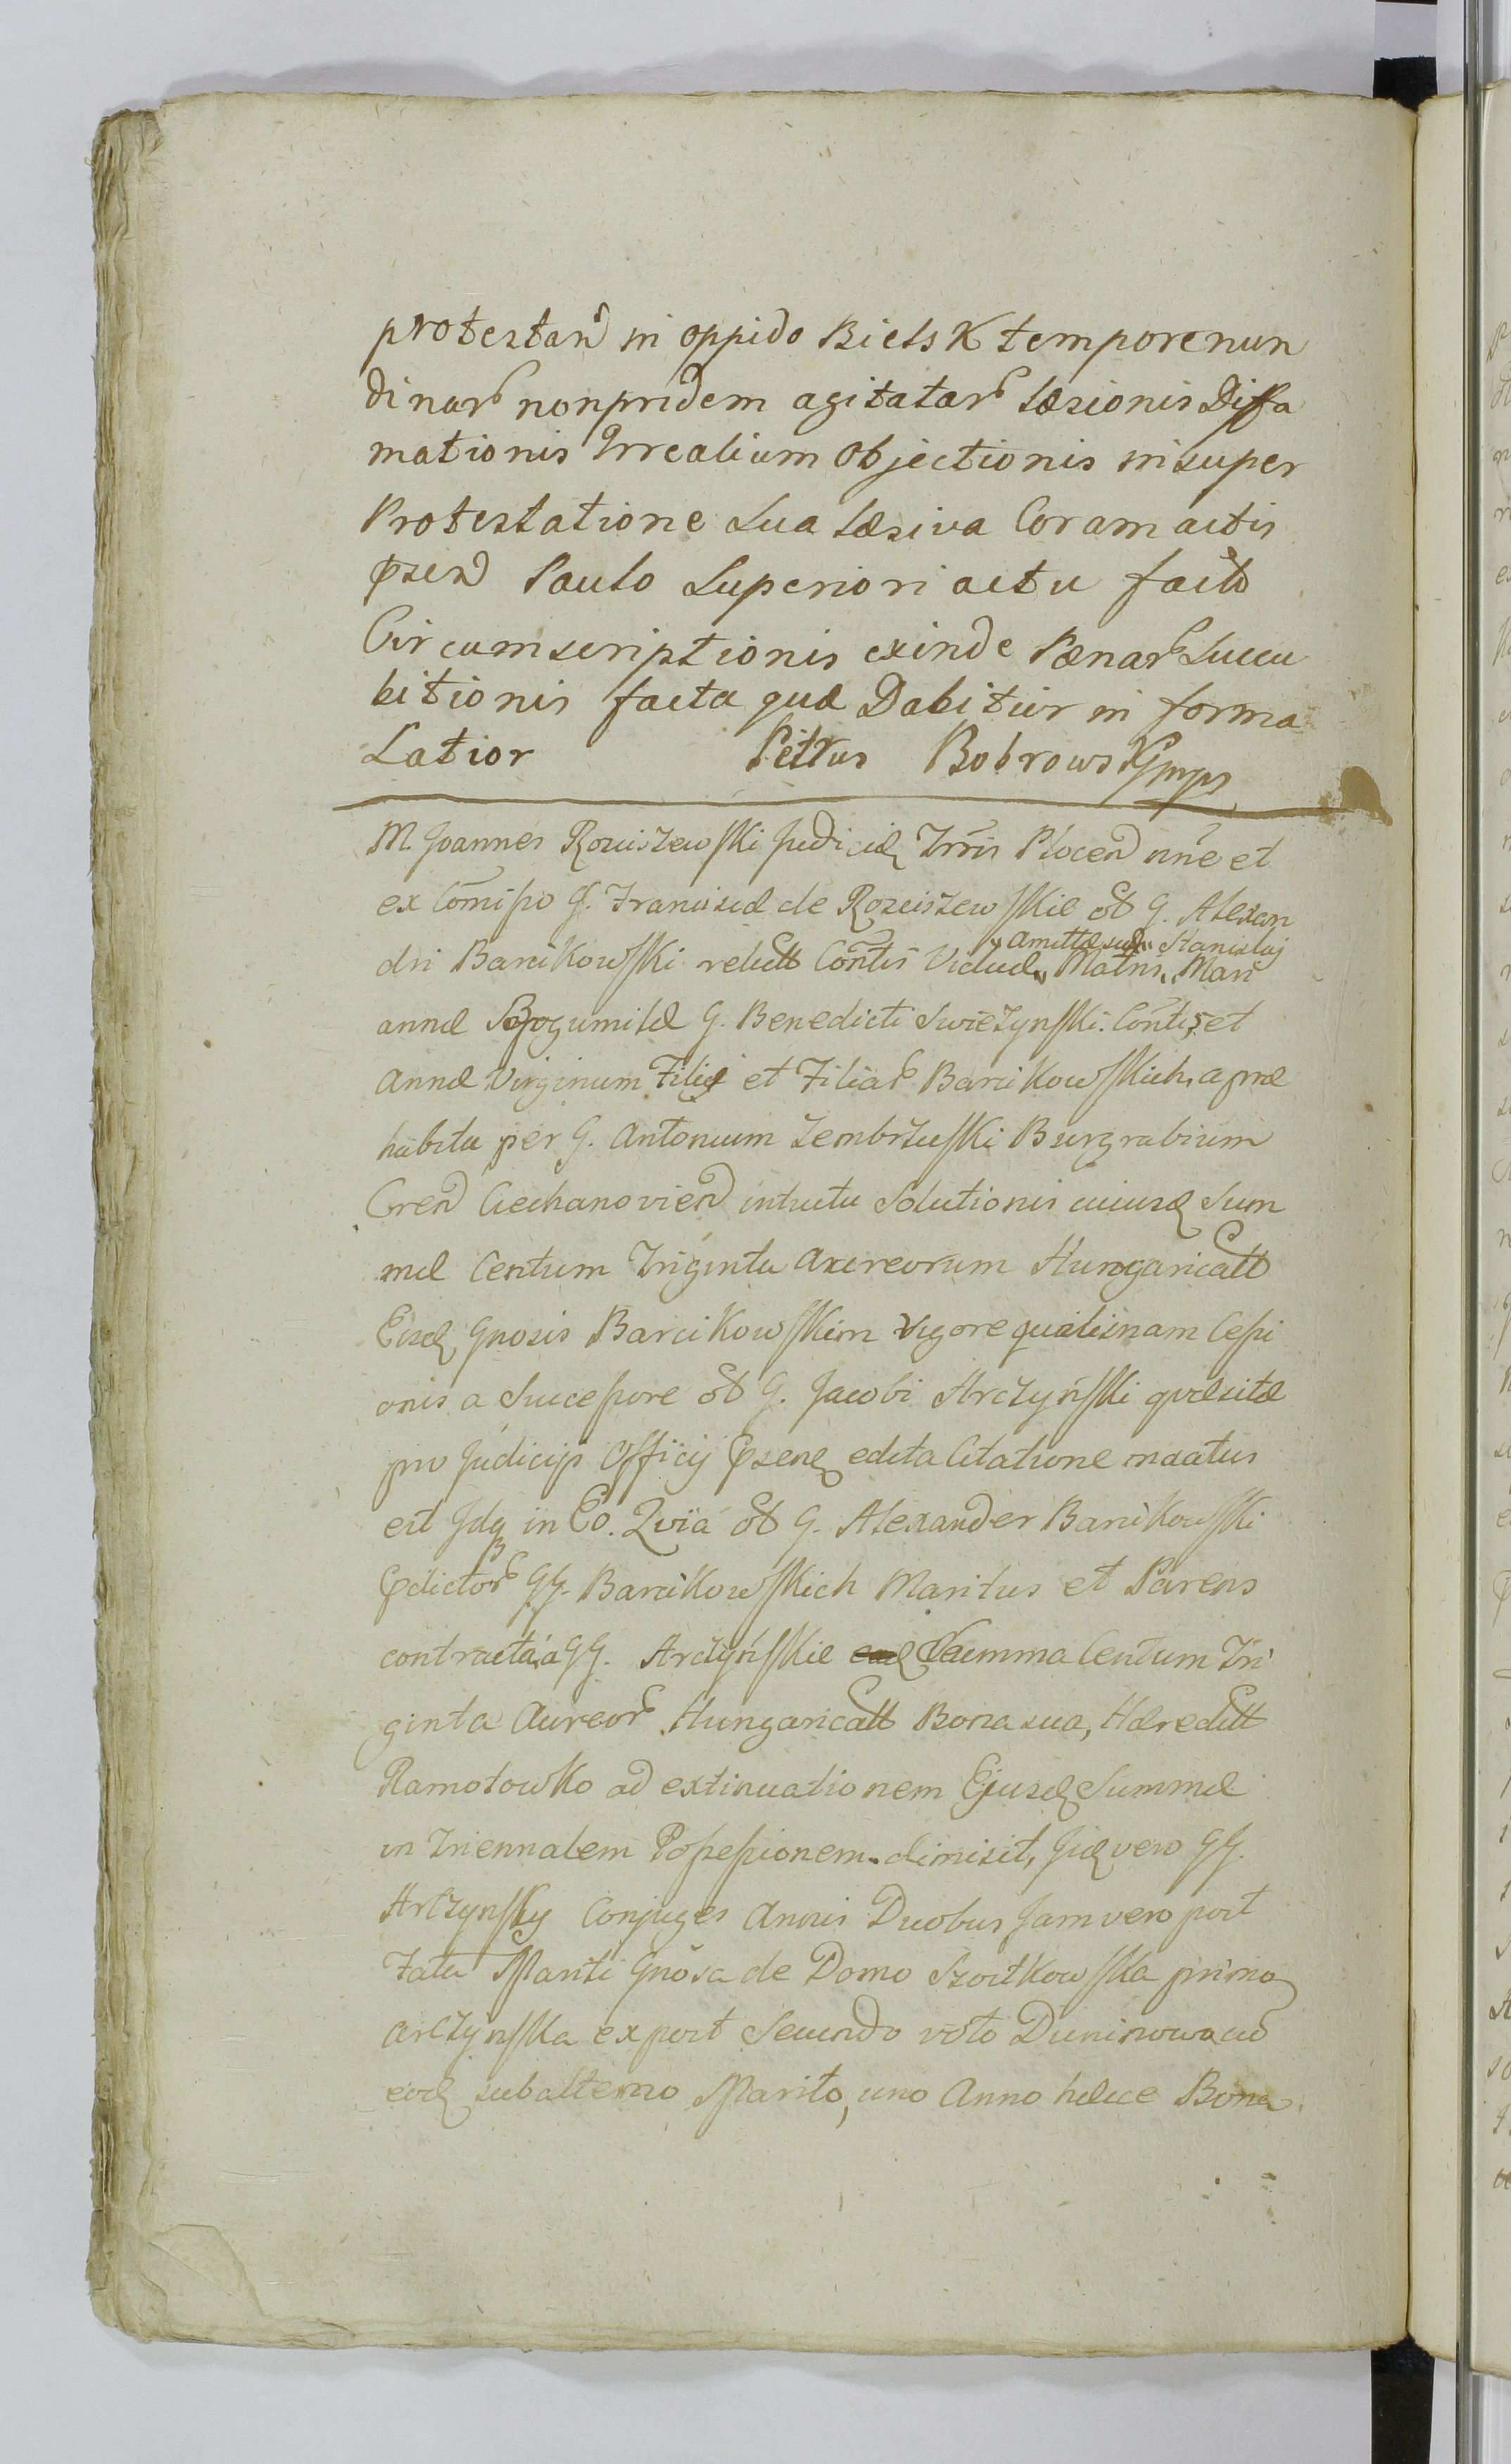 protestan in oppido Bielsk tempore nun
dinar nonpridem agitatar læsionis Diffa
mationis Irrealium Objectionis insuper
Protestatione sua læsiva Coram actis
præsen Paulo Superiori actu facto
Circumscriptionis exinde Pænar Succu
bitionis facta quæ Dabitur in forma
Latior Petrus Bobrowski mps
M. Joannes Rosciszewski Judicii Trris Plocen nne et
ex Commisso G. Franciscæ de Rosciszewskie olt G. Alexan
dri Barcikowski relictt Contis Viduæ Matris, Mari
amittæ suæ Stanislaj
annæ Bogumilæ G. Benedicti Swiezynski Contis et
Annæ Virginum Filij et Filiar Barcikowskich, a præ
habita per G. Antonium Zembrzuski Burgrabium
Cren Ciechanovien intuitu Solutionis cuiusd Sum
mæ Centum Triginta Aureorum Hungaricall
Eisd Gnosis Barcikowskim Vigore qualisnam Cessi
onis a Successore olt G. Jacobi Arczynski quæsitæ
pro Judicijs Officij præsen edita Citatione maatus
est Idq in Eo. Quia olt G. Alexander Barcikowski
prædictor GG. Barcikowskich Maritus et Parens
contracta a GG. Arczynskie Summa Centum Tri
ginta Aureor Hungaricall Bona sua, Hæreditt
Ramotowko ad extinuationem Ejusd Summæ
in Triennalem Possessionem dimisit, Jid vero GG.
Arczynsky Conjuges Annis Duobus Jam vero post
Fata Mariti Gnosa de Domo Szoitkowska primo
Arczynska ex post Secundo voto Duninowa cu
eod subalterno Marito, uno Anno hæce Bona